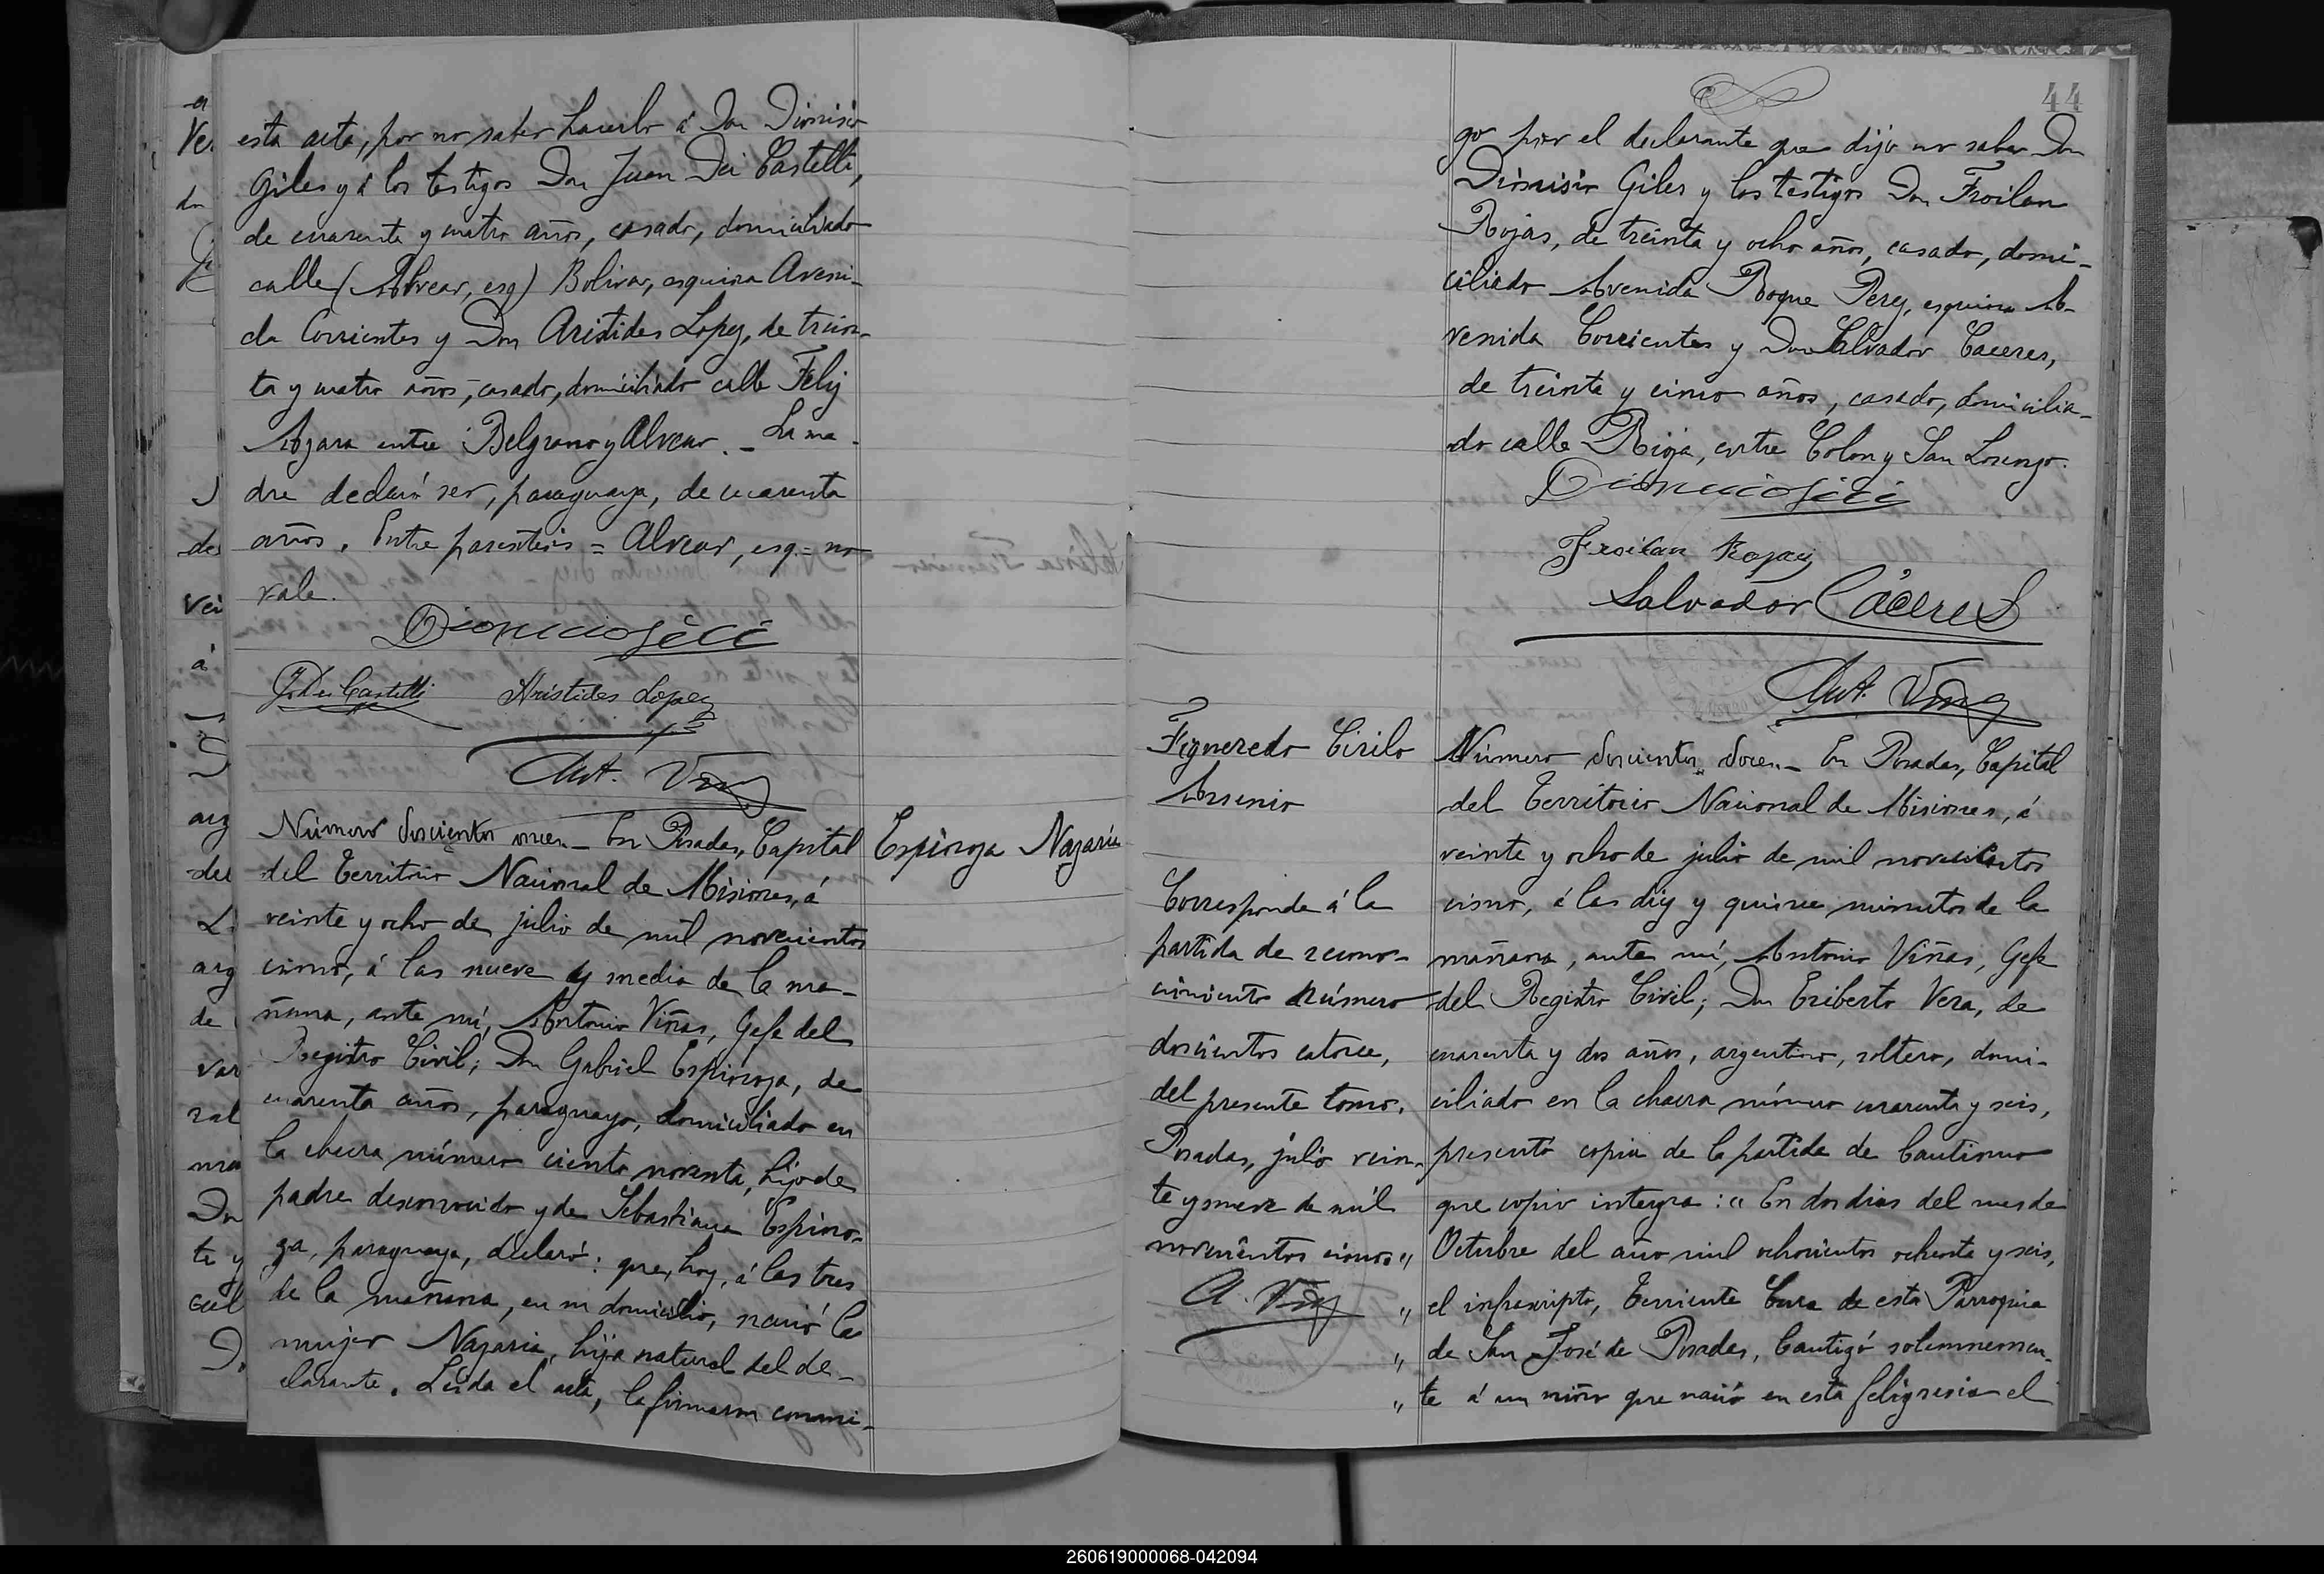 esta acta, por no saber hacerlo á Don Dionisio
Giles y á los testigos Don Juan Dei Castelli,
de cuarenta y cuatro años, casado, domiciliado
calle (Alvear, esq) Bolivar, esquina Aveni-
da Corrientes y Don Aristides Lopez, de trein-
ta y cuatro años, casado, domiciliado calle Feliz
Azara entre Belgrano y Alvear. - La ma-
dre declaró ser, paraguaya, de cuarenta
años. Entre parentesis = Alvear, esq. = no
vale.
Dionicio Jili
J. Dei Castelli Aristides Lopez
Ant. Viñas
Número doscientos once. - En Posadas, Capital
del Territorio Nacional de Misiones, á
veinte y ocho de julio de mil novecientos
cinco, á las nueve y media de la ma-
ñana, ante mí, Antonio Viñas, Gefe del
Registro Civil; Don Gabriel Espinoza, de
cuarenta años, paraguayo, domiciliado en
la chacra número ciento noventa, hijo de
padre desconocido y de Sebastiana Espino-
za, paraguaya, declaró: que, hoy, á las tres
de la mañana, en su domicilio, nació la
mujer Nazaria, hija natural del de-
clarante. Leida el acta, la firmaron conmi-
Espinoza Nazaria
44
go por el declarante que dijo no saber Don
Dionisio Giles y los testigos Don Froilan
Rojas, de treinta y ocho años, casado, domi-
ciliado Avenida Roque Perez, esquina A-
venida Corrientes y Don Salvador Caceres,
de treinta y cinco años, casado, domicilia-
do calle Rioja, entre Colon y San Lorenzo.
Dionicio Jili
Froilan Rojas
Salvador Cáceres
Ant. Viñas
Figueredo Cirilo
Arsenio
Corresponde á la
partida de recono-
cimiento número
doscientos catorce,
del presente tomo.
Posadas, julio vein-
te y nueve de mil
novecientos cinco
A. Viñas
Número doscientos doce. - En Posadas, Capital
del Territorio Nacional de Misiones, á
veinte y ocho de julio de mil novecientos
cinco, á las diez y quince minutos de la
mañana, ante mí, Antonio Viñas, Gefe
del Registro Civil; Don Eriberto Vera, de
cuarenta y dos años, argentino, soltero, domi-
ciliado en la chacra número cuarenta y seis,
presentó copia de la partida de bautismo
que copio integra: " En dos dias del mes de
" Octubre del año mil ochocientos ochenta y seis,
" el infrascripto, Teniente Cura de esta Parroquia
" de San José de Posadas, bautizó solemnemen-
" te á un niño que nació en esta feligresia el
260619000068-042094